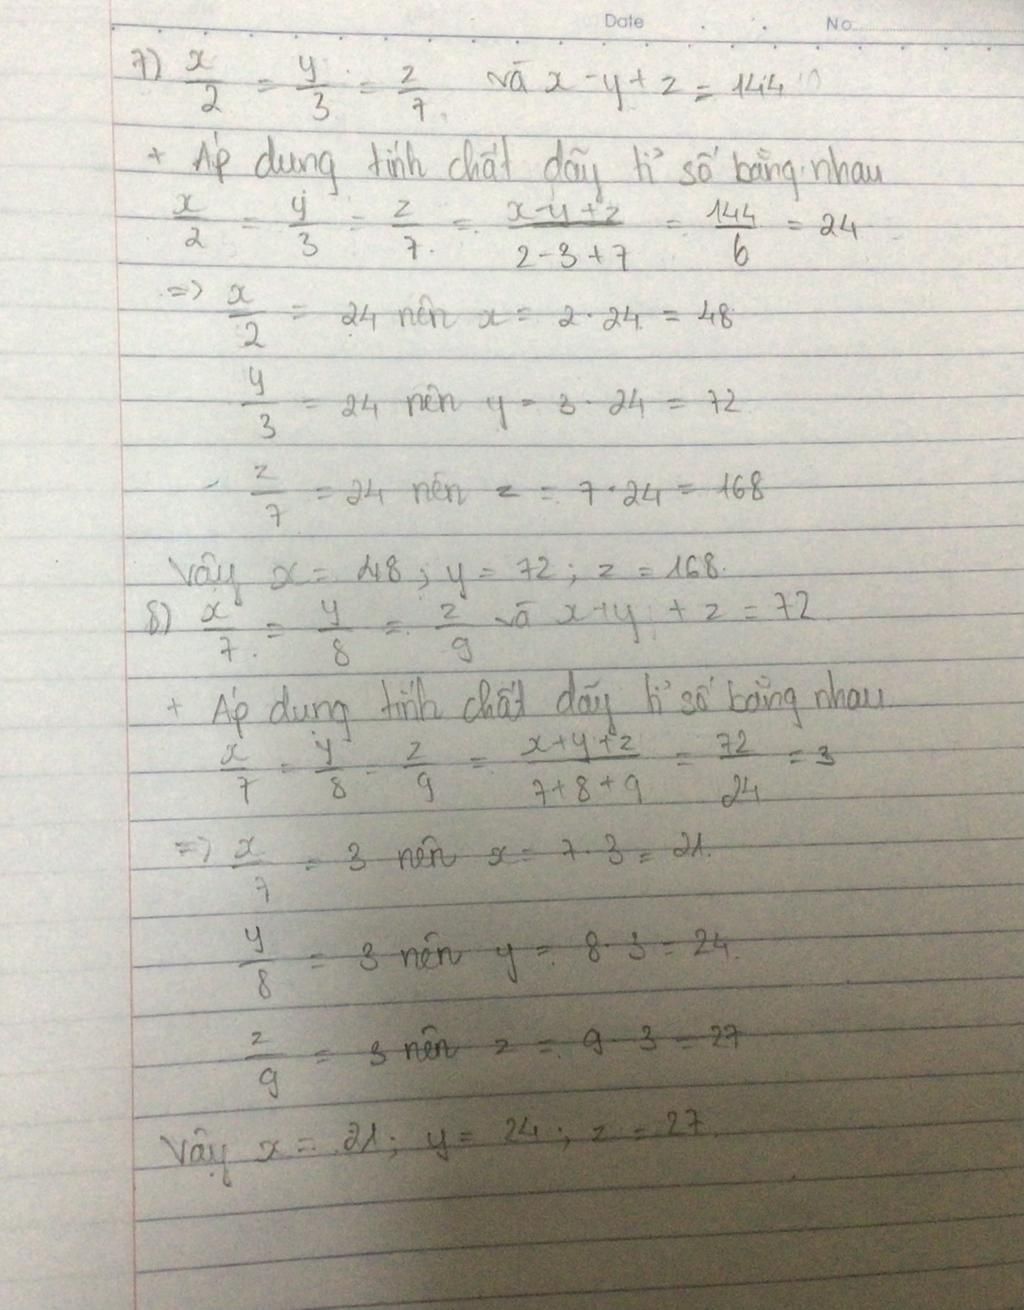 Date No.
7) x/2 = y/3 = z/7 và x - y + z = 144
+ Áp dụng tính chất dãy tỉ số bằng nhau
x/2 = y/3 = z/7 = (x-y+z)/(2-3+7) = 144/6 = 24
=> x/2 = 24 nên x = 2.24 = 48
y/3 = 24 nên y = 3.24 = 72
z/7 = 24 nên z = 7.24 = 168
Vậy x = 48; y = 72; z = 168.
8) x/7 = y/8 = z/9 và x+y + z = 72
+ Áp dụng tính chất dãy tỉ số bằng nhau
x/7 = y/8 = z/9 = (x+y+z)/(7+8+9) = 72/24 = 3
=> x/7 = 3 nên x = 7.3 = 21.
y/8 = 3 nên y = 8.3 = 24.
z/9 = 3 nên z = 9.3 = 27
Vậy x = 21; y = 24; z = 27.